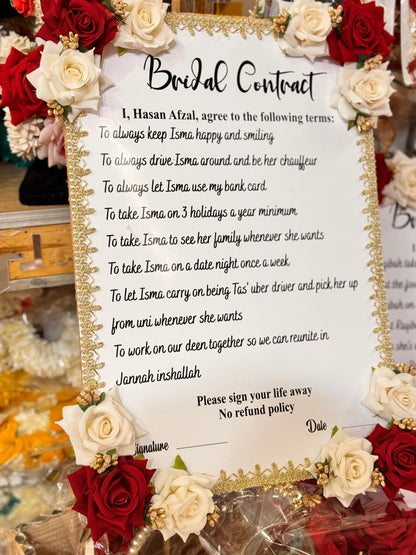 Bridal Contract
I, Hasan Afzal, agree to the following terms:
To always keep Isma happy and smiling
To always drive Isma around and be her chauffeur
To always let Isma use my bank card
To take Isma on 3 holidays a year minimum
To take Isma to see her family whenever she wants
To take Isma on a date night once a week
To let Isma carry on being Tas' uber driver and pick her up
from uni whenever she wants
To work on our deen together so we can reunite in
Jannah inshallah
Please sign your life away
No refund policy
Signature Date